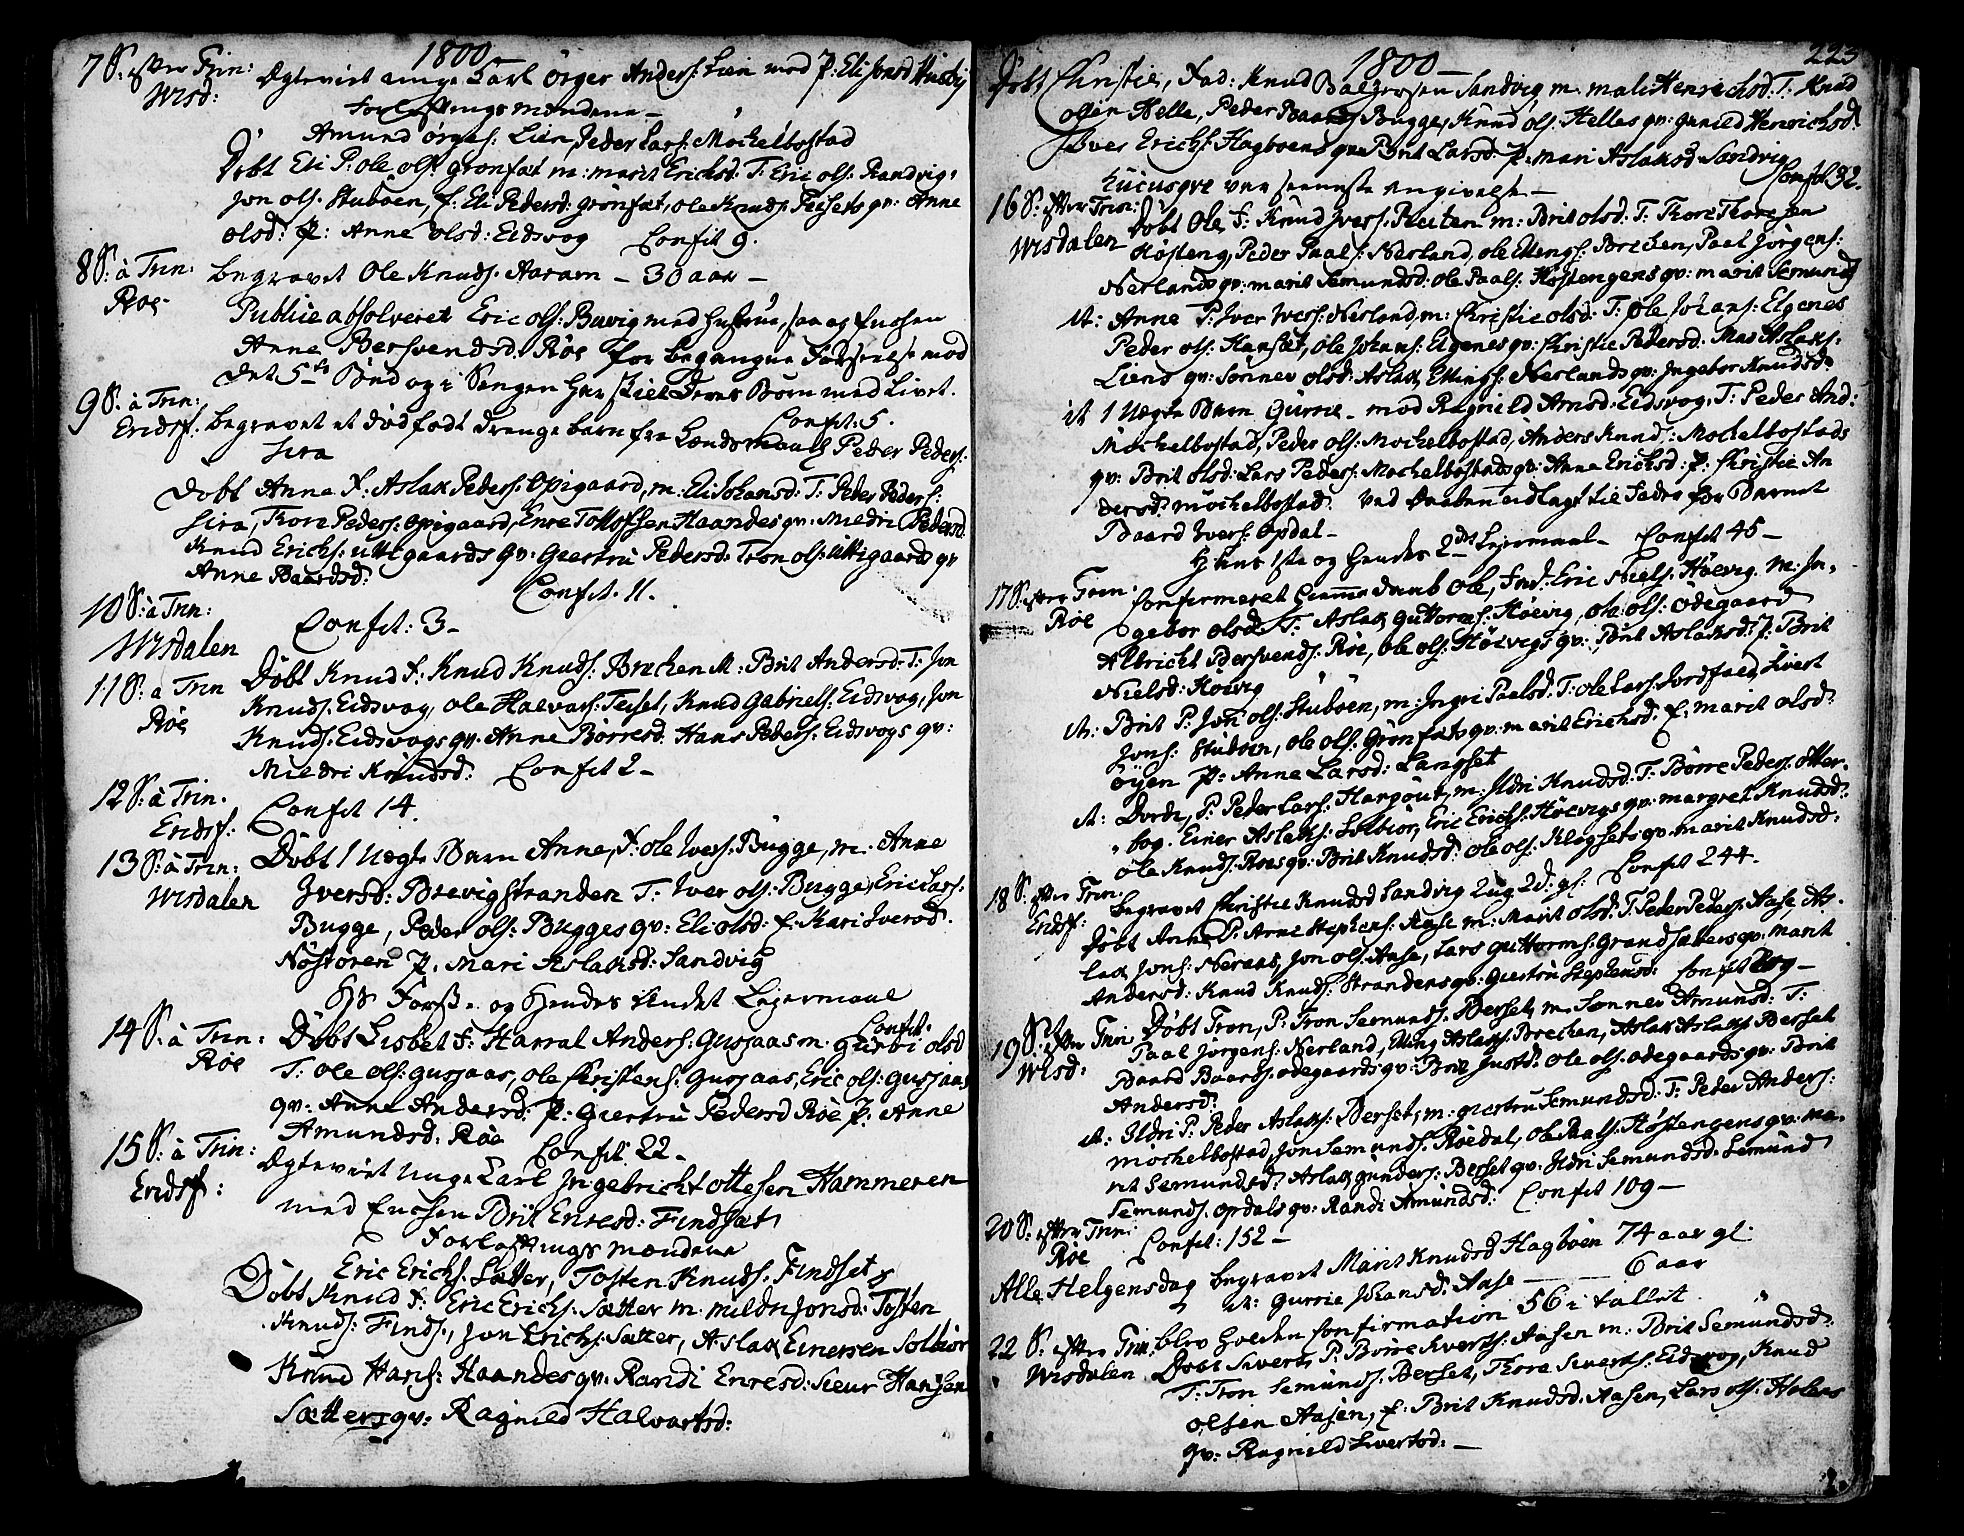 1800
7 S. efter Trin: Ægteviet unge Karl Örger Anders: Lien med P. Eli Jonsd Husby
Wisd: Forlovnings mændene -
Amund Örges: Lien, Peder Lars: Mochelbostad
Döbt Eli P: Ole Ols: Grönsæt m: Marit Ericksd: T: Eric Ols: Randvig,
Jon Ols: Stuboen, f. Eli Pedersd: Grönsæt, Ole Knuds: Teisets qv: Anne
Olsd: P: Anne Olsd: Eidsvog Confit 9.
8 S: à Trin: begravet Ole Knuds. Aaram - 30 aar -
Röe Publice absolveret Eric Ols: Buvig med Hustrue, saa og Enchen
Anne Bersvendsd: Röe for begangne Forseelse mod
det 5te Bud og i Sengen har skilt deres Börn med Livet.
9 S. à Trin: Confit: 5.
Eridsf: begravet et dödfödt drengebarn fra Lændsmand Peder Peders:
Sira
Döbt Anne F. Aslak Peders: Opigaard, m: Eli Johansd: T: Peder Peders:
Sira, Thore Peders: Opigaard, Enre Tollofsen Haandes qv: Mildri Pedersd:
Knud Erichs: Uttigaards qv: Giertru Pedersd: Tron Ols: Uttigaards qv
Anne Baardsd: Confit. 11.
10 S: à Trin:
Wisdalen Confit: 3 -
11 S: a Trin Döbt Knud F: Knud Knuds: Brechen M: Brit Andersd: T: Jon
Röe Knuds. Eidsvog, Ole Halvars: Teiset, Knud Gabriels: Eidsvog, Jon
Knuds. Eidsvogs qv: Anne Börresd: Hans Peders: Eidsvogs qv:
Mildri Knudsd: Confit 2 -
12 S: à Trin.
Eridsf: Confit 14.
13 S: à Trin: Döbt 1 Uægte Barn Anne, F: Ole Ivers: Bugge, m: Anne
Wisdalen Iversd: Brevigstranden T: Iver Ols: Bugge, Eric Lars:
Bugge, Peder Ols: Bugges qv: Eli Olsd: f: Kari Iversd:
Nöstören P. Mari Aslaksd: Sandvig
Hs Förste og Hendes andet Leiermaal
14 S: à Trin: Confit:
Döbt Lisbet F: Harral Anders: Gusjaas m. Gurri Olsd
Röe T: Ole Ols: Gusjaas, Ole Christens: Gusjaas, Eric Ols: Gusjaas
qv: Anne Andersd: P: Giertru Pedersd Röe P: Anne
Amundsd: Röe Confit. 22 -
15 S: à Trin: Ægteviet Unge Karl Ingebricht Ottesen Hammeren
Eridsf: med Enchen Brit Enresd: Findsæt
Forlovnings mændene
Eric Erichs: Sætter, Tosten Knuds. Findset
Döbt Knud F: Eric Erichs: Sætter m: Mildri Jonsd: Tosten
Knuds: Finds:, Jon Erichs: Sæter, Aslak Einersen Solbiör
Knud Hans: Haandes qv: Randi Enresd: Siur Hansen
Sætters qv: Ragnild Halvartsd:
223
1800 -
Döbt Christie, Fad: Knud Balzersen Sandvig m: Mali Henrichsd: T: Knud
Olsen Helle, Peder Baards: Bugge, Knud Ols: Helles qv: Gunild Henrichsd:
Iver Erichs: Hagboens qv: Brit Larsd: P: Mari Aslaksd Sandvig
Confit 32.
hucusqve var seeneste angivelse -
16 S: efter Trin: Döbt Ole F: Knud Ivers: Reiten m: Brit Olsd: T: Thore Thoresen
Wisdalen Hösteng, Peder Paals: Nerland, Ole Ellings: Brechen, Paal Jörgens:
Nerlands qv: Marit Semundsd: Ole Paals: Höstengens qv: Marit Semundsd
it: Anne P: Iver Ivers: Nerland, m: Christie Olsd: T: Ole Johans: Elgenes
Peder Ols: Hansæt, Ole Johans: Elgenes qv: Christie Pedersd: Mas Aslaks:
Liens qv: Sönnev Olsd: Aslak Ellings: Nerlands qv: Ingebor Knudsd:
it 1 Uægte Barn Gurrie - mod: Ragnild Arnsd: Eidsvog: T: Peder And:
Mochelbostad, Peder Ols: Mochelbostad, Anders Knud: Mochelbostads
qv: Brit Olsd: Lars Peders: Mochelbostads qv: Anne Erichsd: P: Christie An
dersd: Mochelbostad: Ved Daaben udlagt til Fader for Barnet
Baard Ivers: Opdal -
Hans 1ste og Hendes 2det Leiermaal - Confit 45 -
17 S: efter Trin: Confirmeret hiemme daab Ole, Fad: Eric Niels: Höevig. M: In-
Röe gebor Olsd: T: Aslak Guttorms: Höevig, Ole Ols: Ödegaard
Albricht Bersvends: Röe, Ole Ols: Höevigs qv: Brit Aslaksd: P: Brit
Nielsd: Höevig
it: Brit P: Jon Ols: Stuboen, m: Ingri Paalsd: T: Ole Lars: Svidfald, Sivert
Jons: Stuboen, Ole Ols: Grönsæts qv: Marit Erichsd: f: Marit Olsd:
Öyen P: Anne Larsd: Langset
it: Dordi, P: Peder Lars: Hargöut, m: Ildri Knudsd: T: Börre Peders: Otter-
bog. Einer Aslaks: Solbiör, Eric Erichs: Höevigs qv: Margret Knudsd:
Ole Knuds: Roes qv: Brit Knudsd: Ole Ols: Klogsets qv: Marit Knudsd:
18 S. efter Trin. Confit 244.
begravet Christie Knudsd Sandvig 2 ug 2 d: gl:
Eridsf: Döbt Anne P: Arne Stephens: Aase m: Marit Olsd: T: Peder Peders: Aase, As-
lak Jons: Neraas, Jon Ols: Aase, Lars Guttorms: Grandsætters qv: Marit
Andersd: Knud Knuds: Strandens qv: Giertru Stephensd: Confit 209 -
19 S: efter Trin Döbt Tron, P: Tron Semunds: Berset, m. Sönnev Amundsd: T:
Wisd: Paal Jörgens: Nerland, Elling Aslaks: Brechen, Aslak Aslaks: Berset
Baard Baards: Ödegaards qv: Brit Justd: Ole Ols: Ödegaards qv: Brit
Andersd:
it: Ildri P: Peder Aslaks: Berset, m: Giertru Semundsd: T: Peder Anders:
Mochelbostad, Jon Semunds: Röedal, Ole Paals: Höstengens qv: Ma-
rit Semundsd: Aslak Gunders: Berset qv: Ildri Semundsd: Semund
Semunds. Opdals qv: Randi Amundsd: Confit 109 -
20 S: efter Trin:
Röe Confit: 152 -
Alle Helgensdag begravet Marit Knudsd Hagboen 74 aar gl:
it: Gurrie Johansd: Aase - 6 aar
blev holden Confirmation 56 i tallet.
22 S. efter Trin: Döbt Sivert P: Börre Siverts: Aasen m: Brit Semundsd:
Wisdalen T: Tron Semunds: Berset, Thore Siverts: Eidsvog, Knud
Olsen Aasen, f: Brit Knudsd: Aasen, Lars Ols: Holens
qv: Ragnild Sivertsd: -